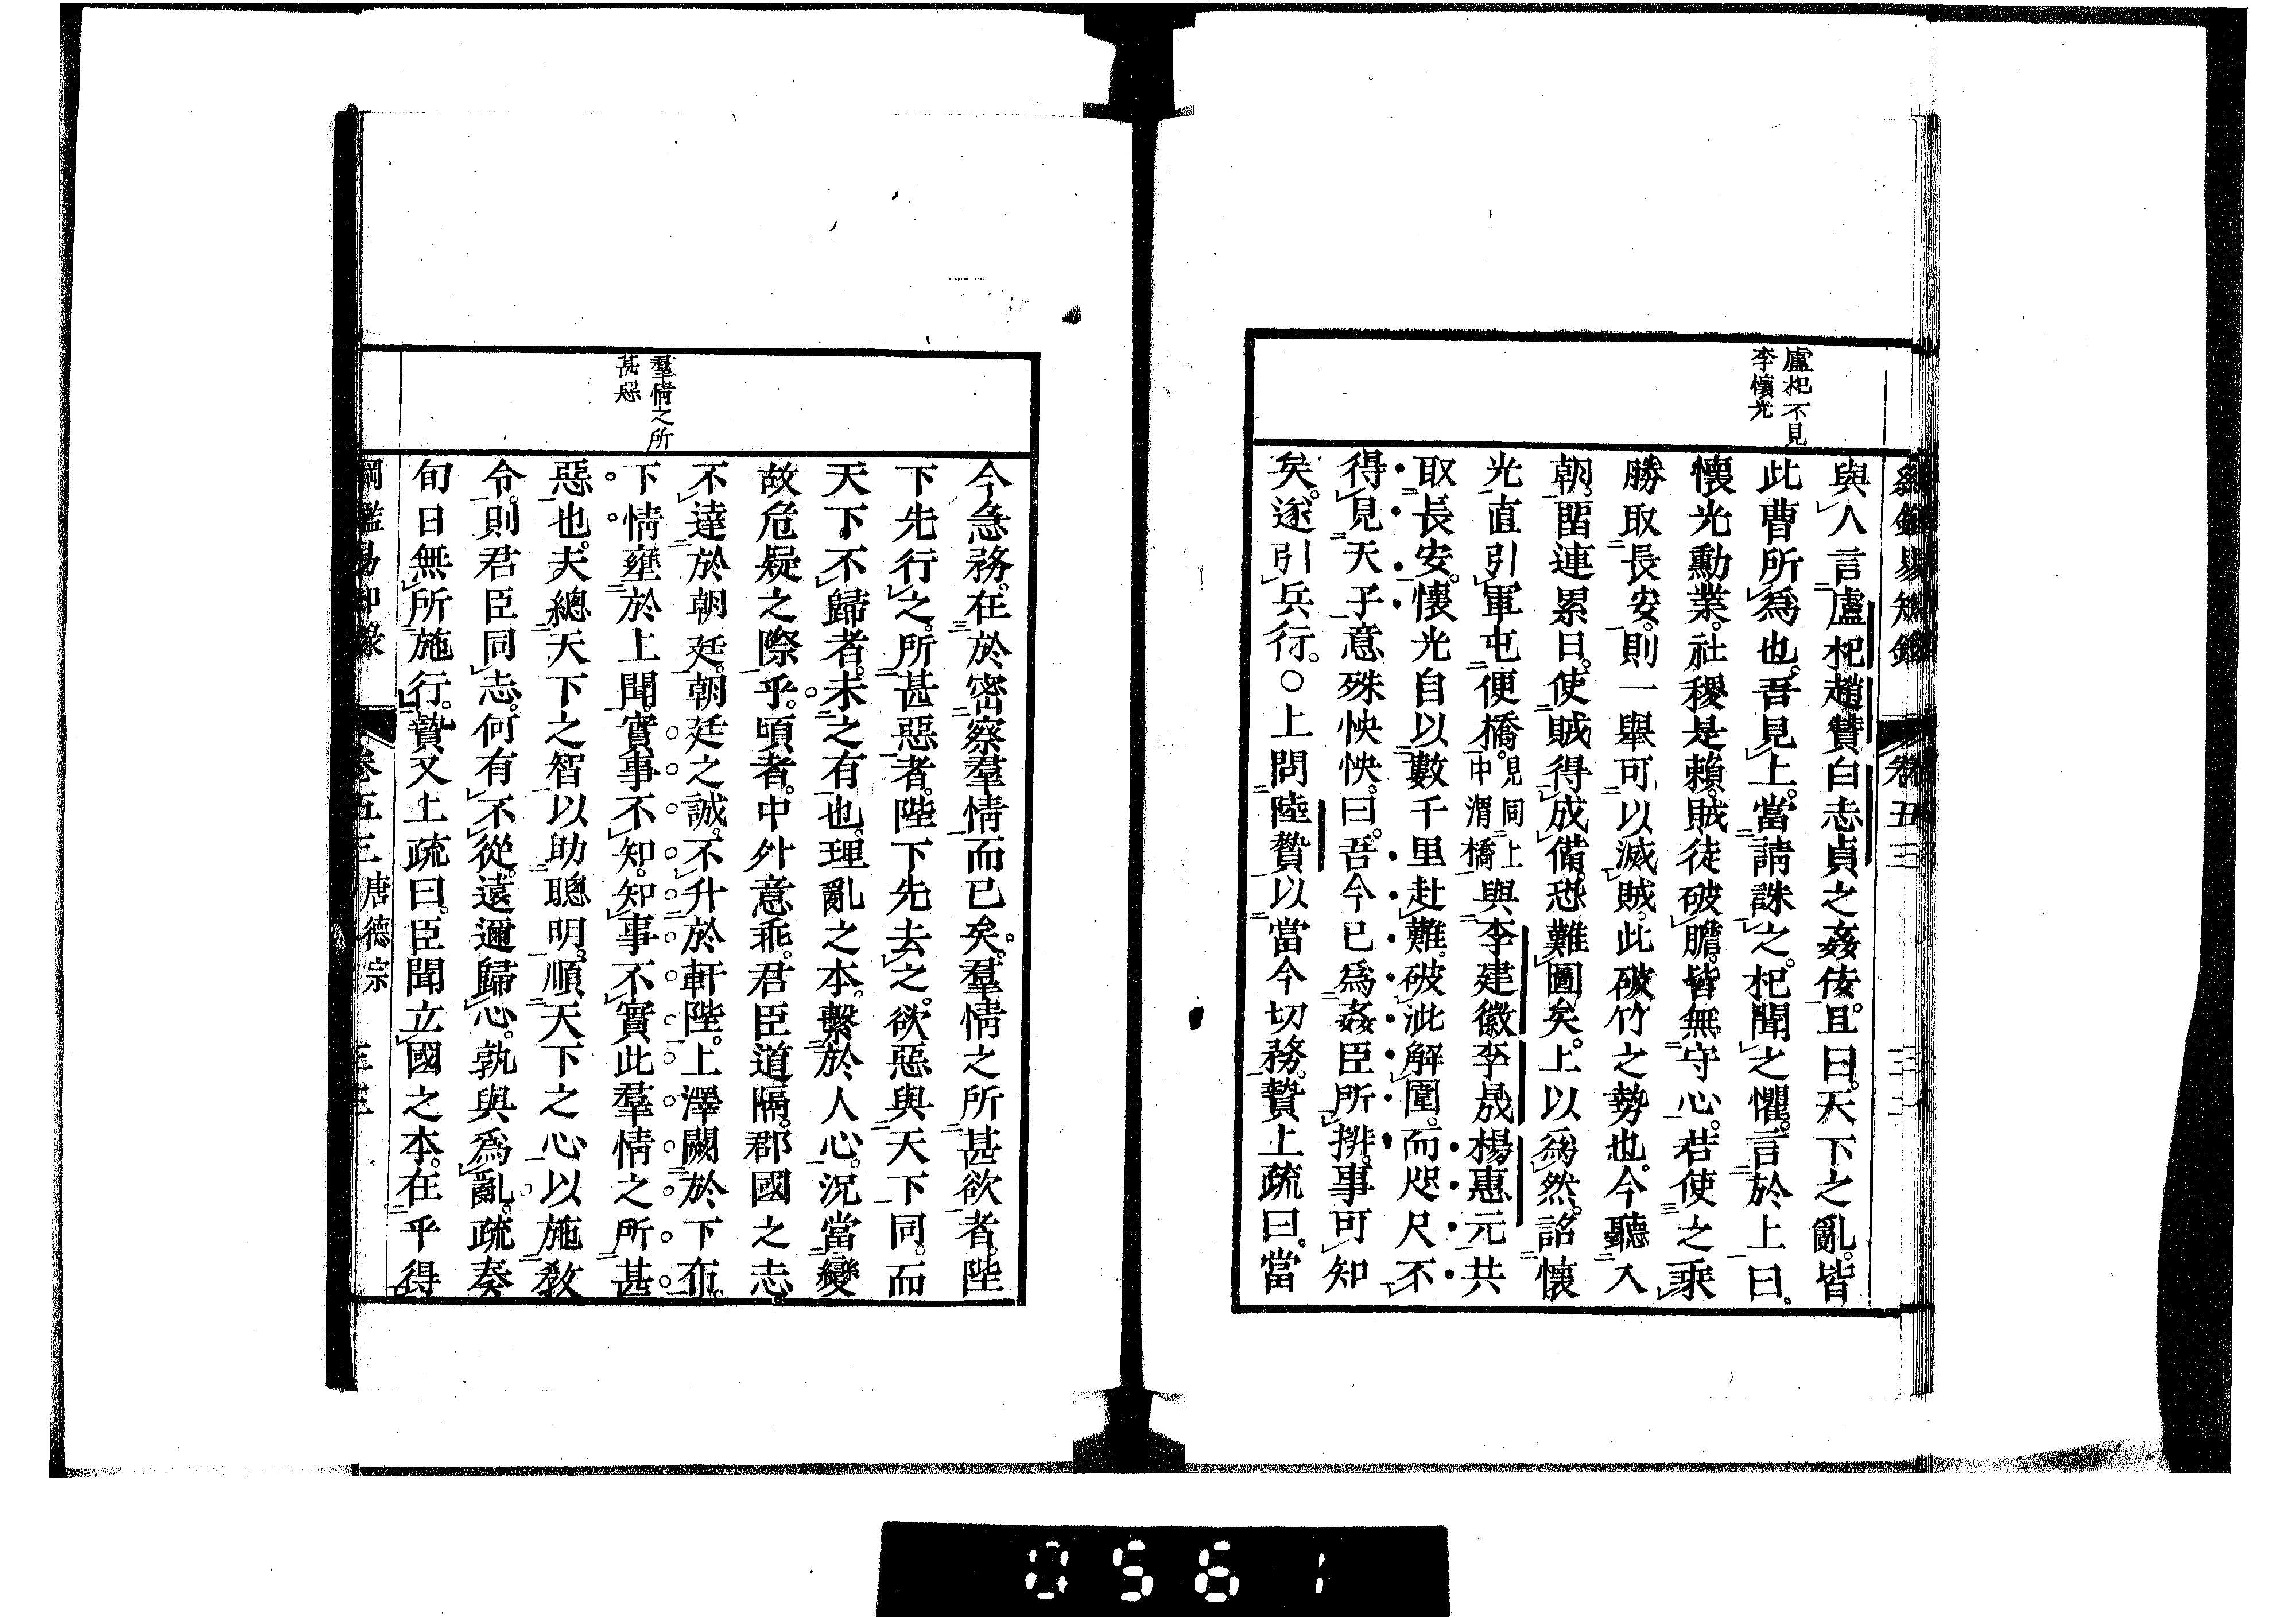 盧杞不見
李懷光
與人言盧杞趙贊白志貞之姦佞。且曰。天下之亂。皆
此曹所爲也。吾見上。當請誅之。杞聞之懼。言於上曰。
懷光勳業。社稷是賴。賊徒破膽。皆無守心。若使之乘
勝取長安。則一舉可以滅賊。此破竹之勢也。今聽入
朝。畱連累日。使賊得成備。恐難圖矣。上以爲然。詔懷
光直引軍屯便橋。見同上中渭橋與李建徽李晟楊惠元共
取長安。懷光自以數千里赴難。破泚解圍。而咫尺不
得見天子。意殊怏怏。曰。吾今已爲姦臣所排。事可知
矣。遂引兵行。○上問陸贄以當今切務。贄上疏曰。當
羣情之所
甚惡
今急務。在於密察羣情而已矣。羣情之所甚欲者。陛
下先行之。所甚惡者。陛下先去之。欲惡與天下同。而
天下不歸者。未之有也。理亂之本。繫於人心。況當變
故危疑之際乎。頃者。中外意乖。君臣道隔。郡國之志。
不達於朝廷。朝廷之誠。不升於軒陛。上澤闕於下布。
下情壅於上聞。實事不知。知事不實。此羣情之所甚
惡也。夫總天下之智。以助聰明。順天下之心。以施敎
令。則君臣同志。何有不從。遠邇歸心。孰與爲亂。疏奏
旬日無所施行。贄又上疏曰。臣聞立國之本。在乎得
綱鑑易知錄 卷五三 唐德宗
0561